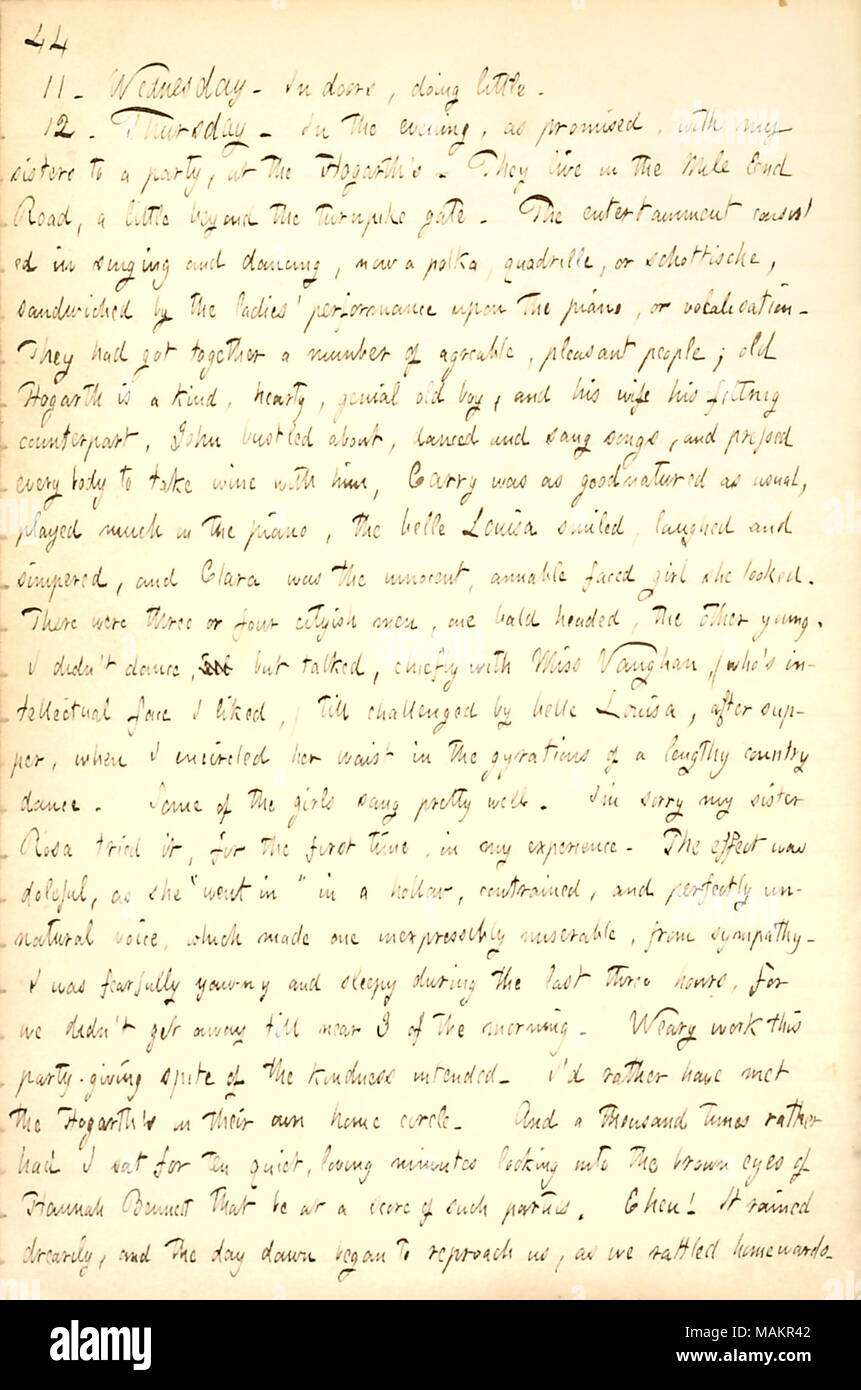 44
11 - Wednesday - In doors, doing little -
12 - Thursday - In the evening, as promised, with my
sisters to a party, at the Hogarth's - They live in the Mile End
Road, a little beyond the turnpike gate - The entertainment consist
ed in singing and dancing, now a polka, quadrille, or schottische,
sandwiched by the ladies' performance upon the piano, or vocalisation -
They had got together a number of agreable, pleasant people; old
Hogarth is a kind, hearty, genial old boy, and his wife his fitting
counterpart, John bustled about, danced and sang songs, and pressed
every body to take wine with him, Carry was as goodnatured as usual,
played much on the piano, the belle Louisa smiled, laughed and
simpered, and Clara was the innocent, amiable faced girl she looked.
There were three or four cityish men, one bald headed, the other young.
I didn't dance, but talked, chiefly with Miss Vaughan, (who's in-
tellectual face I liked,) till challenged by belle Louisa, after sup-
per, when I encircled her waist in the gyrations of a lengthy country
dance - Some of the girls sang pretty well. I'm sorry my sister
Rosa tried it, for the first time, in my experience - The effect was
doleful, as she "went in" in a hollow, contrained, and perfectly un-
natural voice, which made one inexpressibly miserable, from sympathy -
I was fearfully yawny and sleepy during the last three hours, for
we didn't get away till near 3 of the morning - Weary work this
party-giving spite of the kindness intended - I'd rather have met
the Hogarth's in their own home circle - And a thousand times rather
had I sat for ten quiet, loving minutes looking into the brown eyes of
Hannah Bennett that be at a score of such parties. Eheu! It rained
drearily, and the day dawn began to reproach us, as we rattled homewards -
alamy
Image ID: MAKR42
www.alamy.com